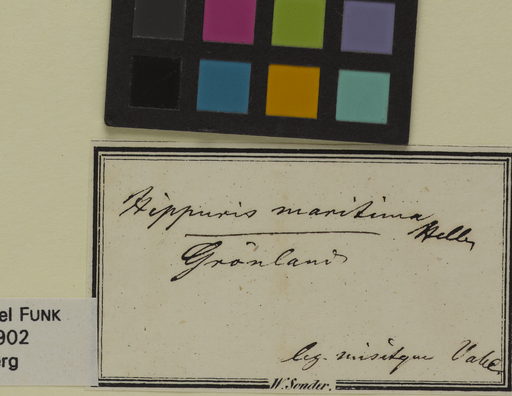 Hippuris maritima
Hellen
Grönland
leg. misitque Vahl.
W. Sonder.
el FUNK
902
erg